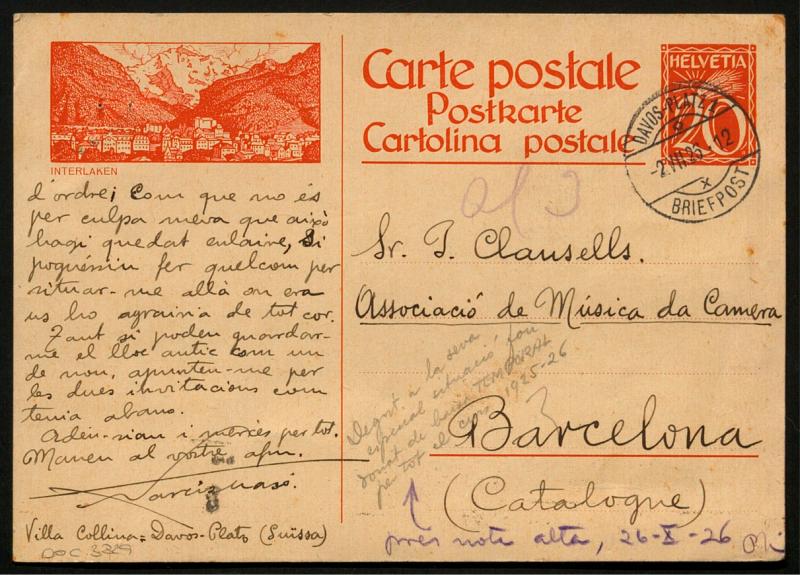 INTERLAKEN
d'ordre; Com que no és
per culpa meva que això
hagi quedat enlaire, si
poguéssiu fer quelcom per
situar-me allà on era
us ho agrairia de tot cor.
Tant si poden guardar-
me el lloc antic com un
de nou, apunten-me per
les dues invitacions com
tenia abans.
Adéu-siau i mercès per tot.
Maneu al vostre afm.
Narcís Masó.
Villa Collina = Davos-Platz (Suïssa)
DOC 3329
Carte postale
Postkarte
Cartolina postale
HELVETIA
20
DAVOS-PLATZ 1
-2.VII.25-12
X
BRIEFPOST
Sr. J. Clausells.
Associació de Música da Camera
Degut a la seva
especial situació, fou
donat de baixa TEMPORAL
per tot el curs 1925-26
3
Barcelona
(Catalogne)
pres nota alta, 26-X-26